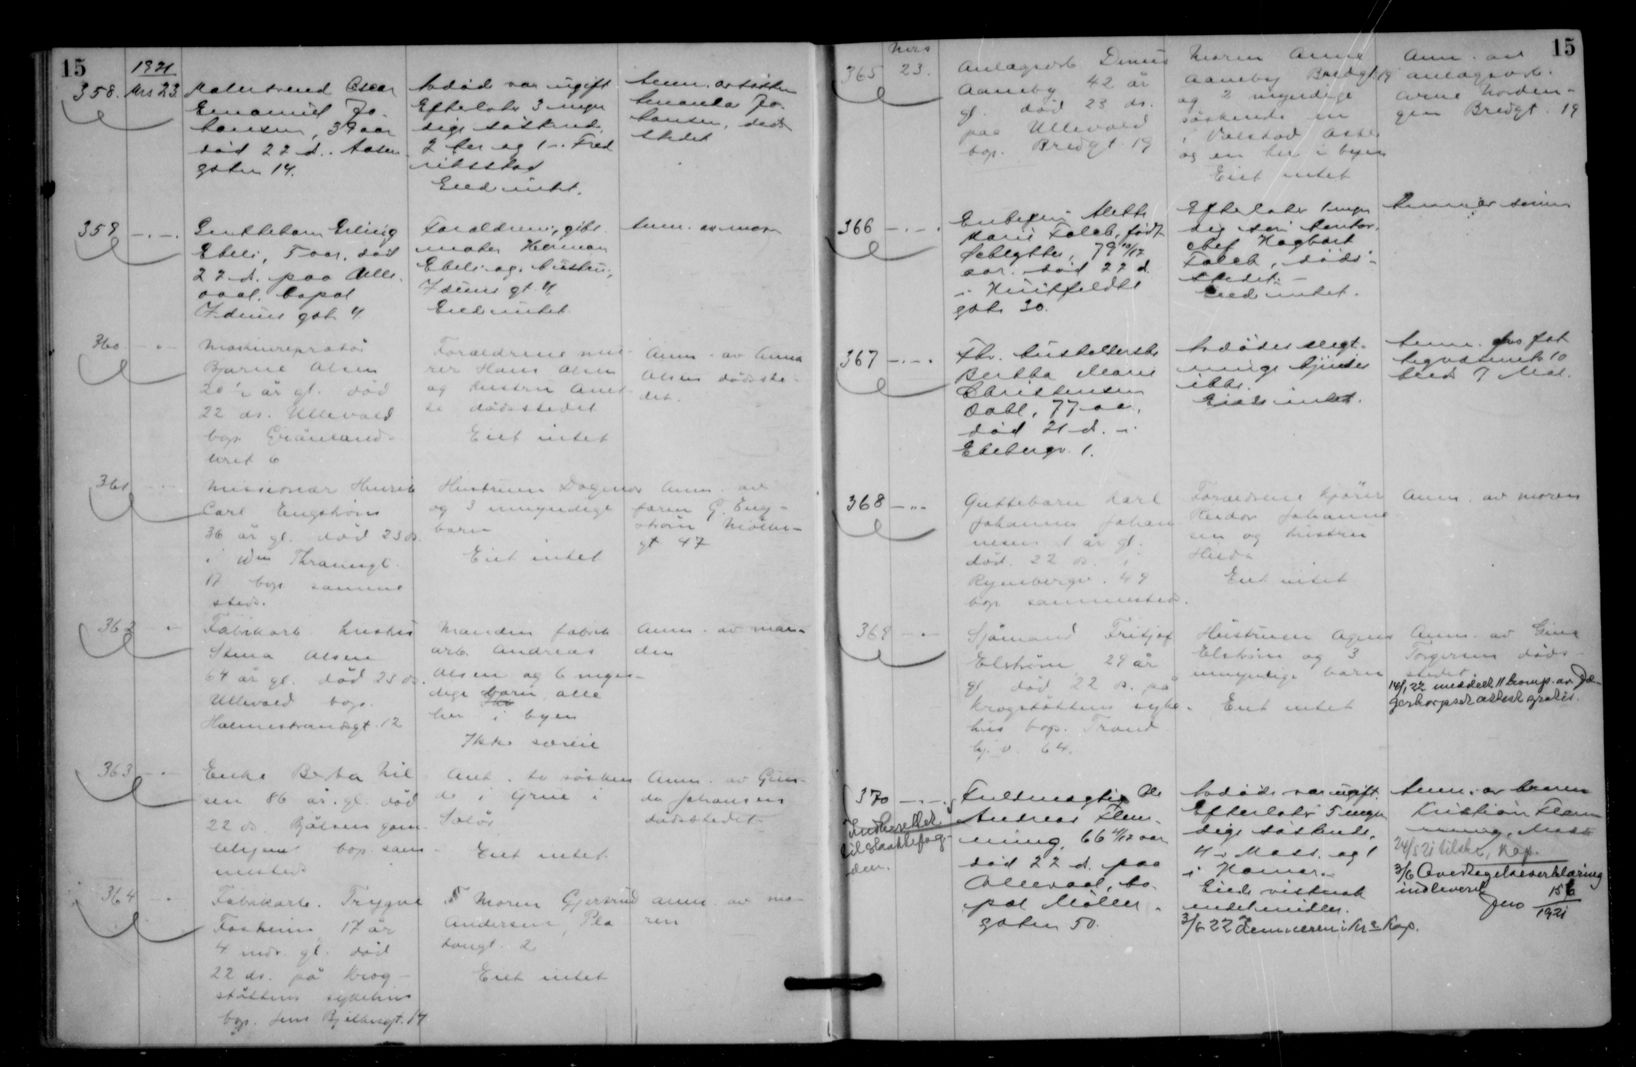 15
1921
358. Mrs 23
Malersvend Oscar
Emanuel Jo-
hansen, 39 aar
død 22 d. Aalesu
gaten 14.
Avdøde var ugift
Efterlater 3 myn
dige søskende
2 her og 1 i Fred
rikstad
Eied intet.
Anm. av søster
Amanda Jo-
hansen, døds
stedet
359 -.-.
Guttebarn Erling
Ebeli, 5 aar, død
22 d. paa Ulle-
vaal, bopal
Iduns gat. 4
Forældrene, gibs
maker Herman
Ebeli og hustru,
Iduns gt. 4
Eied intet
Anm. av mor
360 - " -
Maskinrepratør
Bjarne Olsen
20 ½ år gl. død
22 ds. Ullevaal
bop. Grønlands-
leret 6
Forældrene mu-
rer Hans Olsen
og hustru Anet-
te dødsstedet
Eiet intet
Anm. av Anna
Olsen dødsste-
det.
361 - " -
Missionær Henrik
Carl Engstrøm
36 år gl. død 23 ds.
i Wm Thranesgt.
bop samme
steds.
Hustruen Dagmar
og 3 umyndige
barn
Eiet intet
Anm. av
faren G. Eng-
strøm Møller-
gt 47
362 - " -
Fabrikarb. hustru
Stina Olsen
64 år gl. død 23 ds.
Ullevaal bop.
Holmestrandsgt. 12
Manden fabrik
arb. Andreas
Olsen og 6 myn-
dige barn, alle
her i byen
Ikke særeie
Anm. av man-
den
363 - " -
Enke Berta Nil
sen 86 år. gl. død
22 ds. Bjølsen gam
lehjem bop. sam-
mesteds
Ant. to søsken
de i Grue i
Solør
Eiet intet
Anm. av Gun-
da Johansen
dødsstedet
364 - " -
Fabrikarb. Trygve
Fosheim 17 år
4 mdr. gl. død
22 ds. på Krog-
støttens sykehus
bop. Jens Bjelkesgt. 17
Moren Gjertrud
Andersen, Pla
tousgt. 2
Eiet intet
Anm. av mo-
ren
15
Mrs
365 23.
Anlægsarb Dinus
Aaneby 42 år
gl. død 23 ds.
paa Ullevaal
bop. Bredgt 19
Moren Anne
Aaneby Bredgt 19
og 2 myndige
søskende en
i Valstad Asker
og en her i byen
Eiet intet
Anm. av
anlægsarb.
Arne Norden-
gen Bredgt. 19
366 -.-.
Enkefru Mette
Marie Falch, født
Leblytter, 79 10/12
aar. død 22 d.
i Huitfeldts
gate 30.
Efterlater 1 myn
dig søn kontor-
chef Hagbart
Falch, døds-
stedet. -
Eied intet.
Anm. av sønnen
367 -.-.
Bertha Marie
Christensen
Dahl, 77 aar,
død 21 d. i
Ebebergv. 1.
Avdødes slegt-
ninge kjendes
ikke.
Eied intet.
Anm. fat
tigvæsenets 10
7 Mai.
368 -"-
Guttebarn Karl
Johannes Johan
nesen 1 år gl.
død. 22 ds. i
Rynbergv. 49
bop sammesteds.
Forældrene kjører
Reidar Johanne
sen og hustru
Hulda
Eiet intet
Anm. av moren
369 - " -
Sjømand Fritjof
Elstrøm 29 år
gl. død 22 ds. på
Krogstøttens syke-
hus bop. Trond
hj. v. 64.
Hustruen Agnes
Elstrøm og 3
umyndige barn
Eiet intet
Anm. av Gina
Torgersen døds
stedet
14/1 22 meddelt komp. av Jæ-
gerkorpset attest gratis.
370 -.-.
Indberettet
til slottsfog-
den.
Fuldmægtig Ole
Andreas Flem-
ming, 66 4/12 aar
død 22 d. paa
Ullevaal, bo-
pal Møller-
gaten 50.
Avdøde var ugift.
Efterlater 5 myn
dige søskende,
4 i Moss. og 1
i Hamar. -
Eiede vistnok
endel midler.
3/6 22
Anm. av broren
Kristian Flem
ming, Moss
24/5 21 tilskr, Kap.
3/6 Overtagelseserklæring
indleveret
15/6
1921